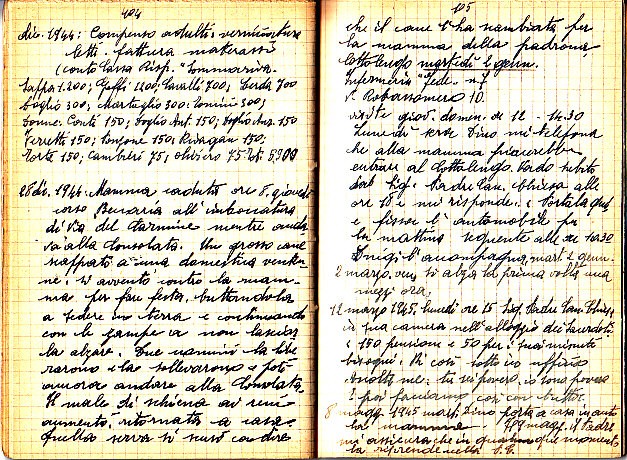 404
dic. 1944: Compenso adulti: verniciatura
letti - fattura materassi
(conto Cassa Risp. Sommariva.
Zappa 1.200; Gaffi; 1100; Cavalli 700; Borda 700
Boglio 300; Martuglio 300: Tonini 300;
Donne: Conti 150; Boglio Ant. 150; Boglio Aus. 150
Ferretti 150; 150; 150;
150; Cambieri 75; Oliviero 75 Tot. 5900
28 dic. 1944. Mamma caduta ore 8, giovedì
corso Beccaria all'imboccatura
di Via del Carmine mentre anda
va alla Consolata. Un grosso cane
scappato a una domestica
si avventò contro la mam-
ma per far festa, buttandola
a sedere in terra e continuando
con le zampe a non lasciar
la alzare. Due uomini la libe
rarono e la sollevarono e potè
ancora andare alla Consolata.
Il male di schiena ai reni
aumentò, ritornata a casa.
Quella serva si scusò con dire
405
che il cane l'ha scambiata per
la mamma della padrona.
Cottolengo martedì 2 genn.
Infermeria "Fede" n. 7
V. Robassomero 10.
visite giov. domen. ore 12 - 14.30
Lunedì sera Dino mi telefona
che alla mamma piacerebbe
entrare al Cottolengo. Vado subito
dal Sig. Padre San. Chiesa alle
ore 18 e mi risponde: "Portala qui,
e fissò l'automobile per
la mattina seguente alle ore 10.30
Luigi l'accompagna, mart. 2 genn.
2 marzo, ven. si alza la prima volta una
mezz'ora,
12 marzo 1945. lunedì ore 15 Sig. Padre San. Chiesa,
in sua camera nell'alloggio dei sacerdoti.
£ 150 pensione e 50 per i suoi minuti
bisogni. Mi così sotto in ufficio
Ascolta me: tu sei povero, io sono povero
E poi facciamo così con tutte.
8 magg. 1945 mart. Dino porta a casa in auto
la mamma - 7/9 magg. il Padre
mi assicura che in qualunque momento
la riprende